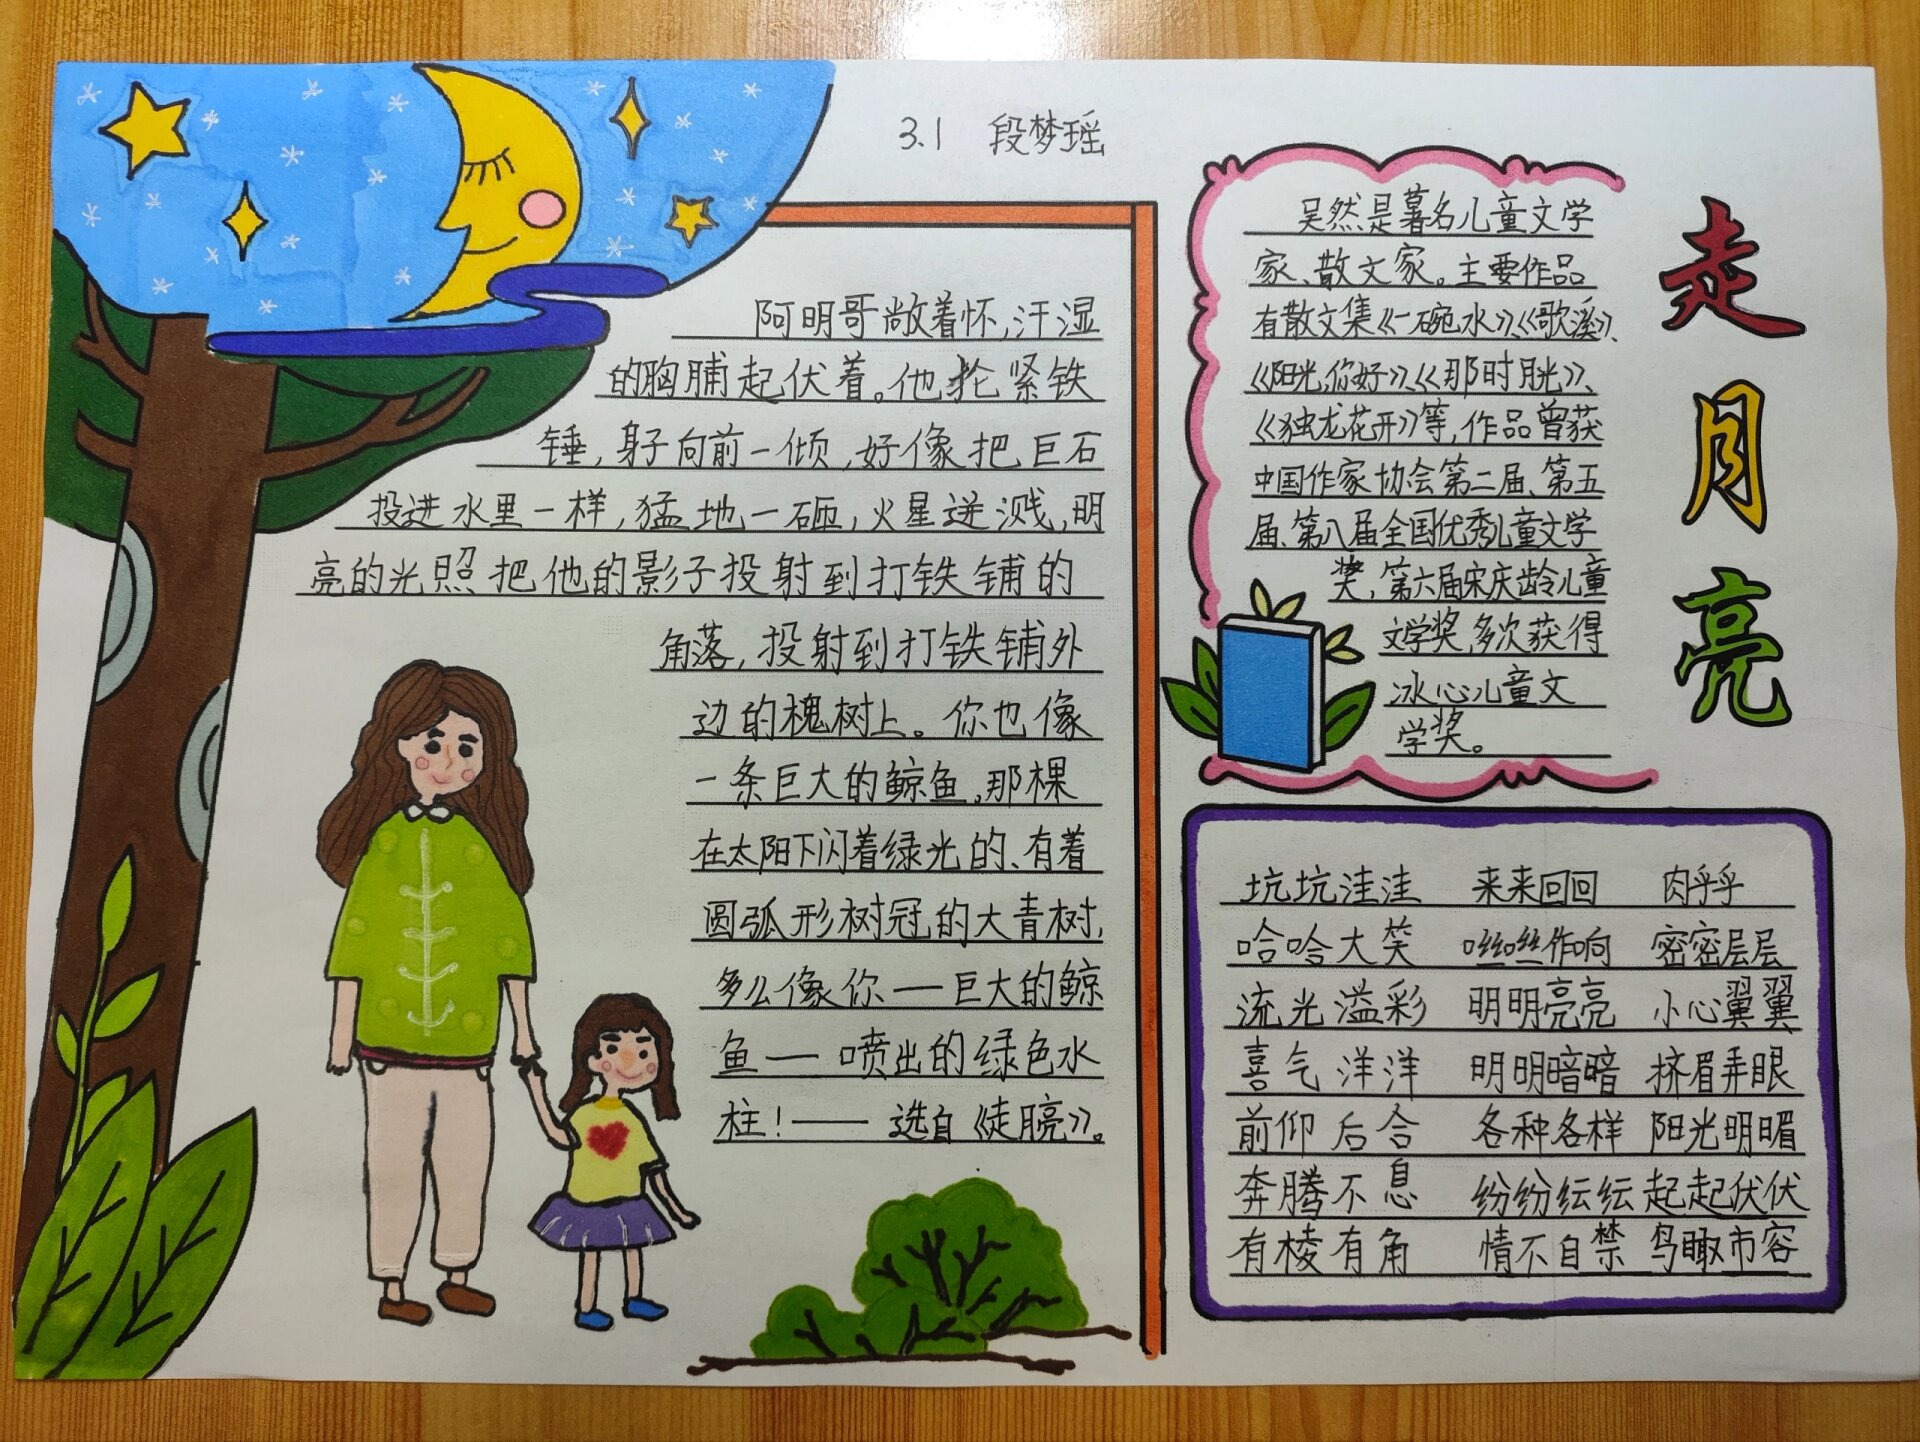 3.1 段梦瑶
阿明哥敞着怀,汗湿
的胸脯起伏着。他抡紧铁
锤,身子向前一倾,好像把巨石
投进水里一样,猛地一砸,火星迸溅,明
亮的光照把他的影子投射到打铁铺的
角落,投射到打铁铺外
边的槐树上。你也像
一条巨大的鲸鱼。那棵
在太阳下闪着绿光的、有着
圆弧形树冠的大青树,
多么像你——巨大的鲸
鱼——喷出的绿色水
柱!——选自《走月亮》。
吴然是著名儿童文学
家、散文家。主要作品
有散文集《一碗水》、《歌溪》、
《阳光,你好》、《那时月光》、
《独龙花开》等,作品曾获
中国作家协会第二届、第五
届、第八届全国优秀儿童文学
奖,第六届宋庆龄儿童
文学奖,多次获得
冰心儿童文
学奖。
走月亮
坑坑洼洼 来来回回 肉乎乎
哈哈大笑 咝咝作响 密密层层
流光溢彩 明明亮亮 小心翼翼
喜气洋洋 明明暗暗 挤眉弄眼
前仰后合 各种各样 阳光明媚
奔腾不息 纷纷纭纭 起起伏伏
有棱有角 情不自禁 鸟瞰市容